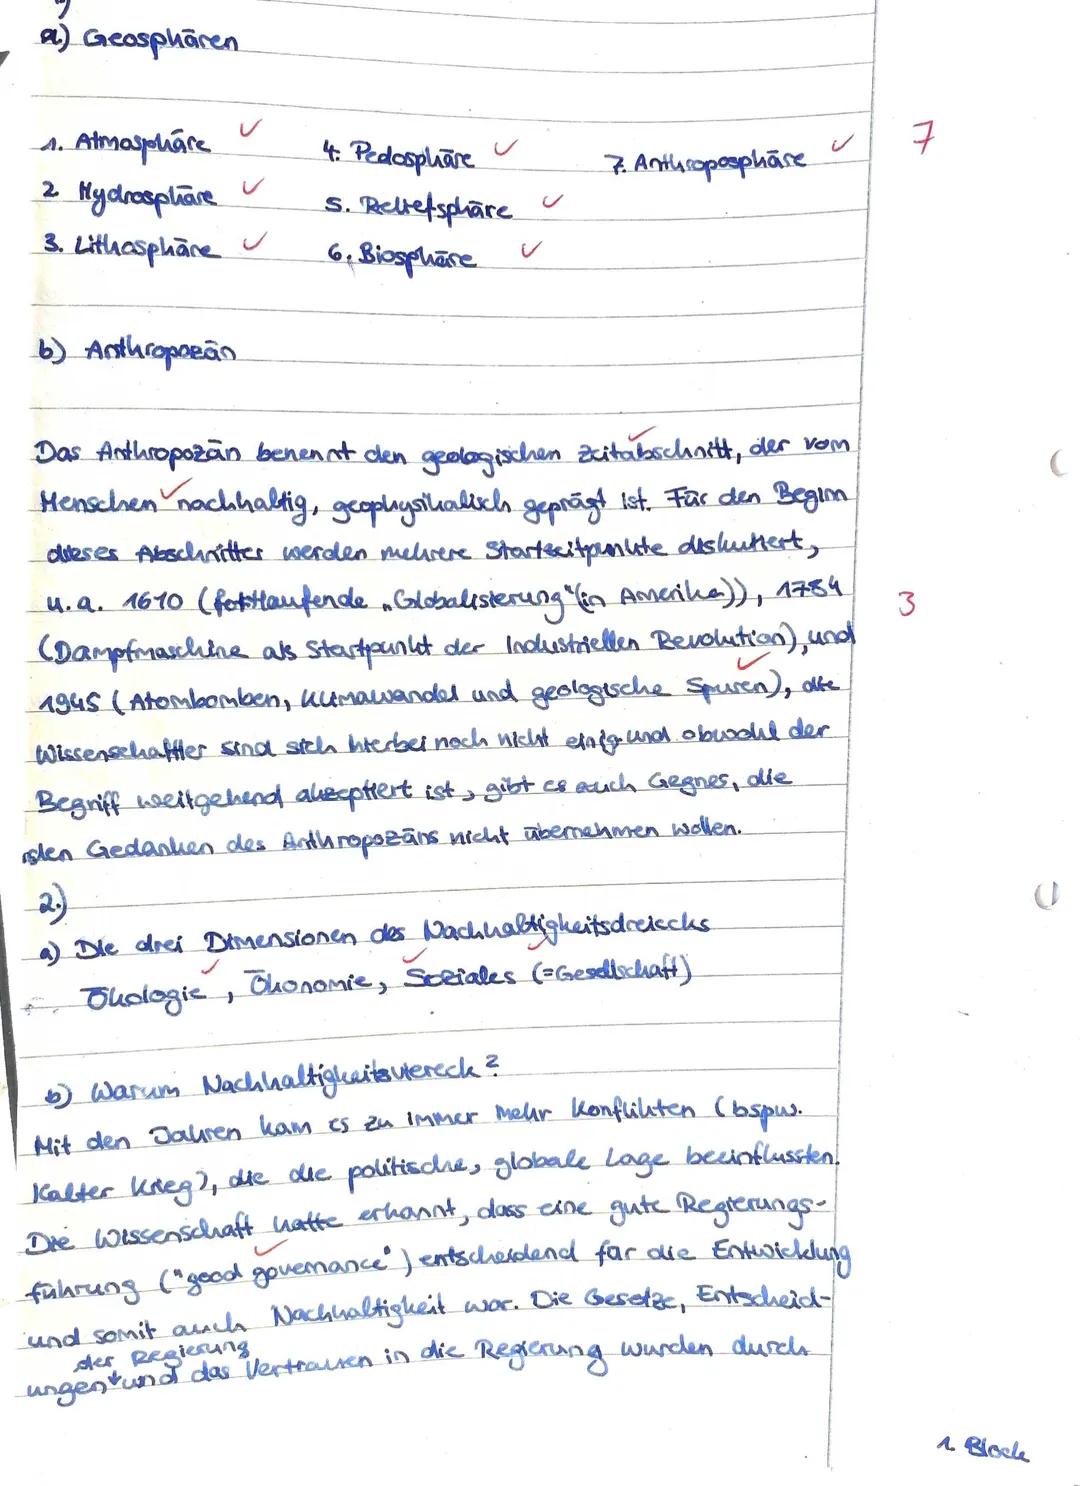 a) Geosphären
1. Atmosphäre 4. Pedosphäre 7. Anthroposphäre 7
2. Hydrosphäre 5. Reliefsphäre
3. Lithosphäre 6. Biosphäre
b) Anthropozän
Das Anthropozän benennt den geologischen Zeitabschnitt, der vom
Menschen nachhaltig, geophysikalisch geprägt ist. Für den Beginn
dieses Abschnittes werden mehrere Startzeitpunkte diskutiert,
u.a. 1610 (fortlaufende „Globalisierung" (in Amerika)), 1784 3
(Dampfmaschine als Startpunkt der Industriellen Revolution), und
1945 (Atombomben, Klimawandel und geologische Spuren), die
Wissenschaftler sind sich hierbei noch nicht einig und obwohl der
Begriff weitgehend akzeptiert ist, gibt es auch Gegner, die
den Gedanken des Anthropozäns nicht übernehmen wollen.
2.)
a) Die drei Dimensionen des Nachhaltigkeitsdreiecks
Ökologie, Ökonomie, Soziales (=Gesellschaft)
b) Warum Nachhaltigkeitsviereck?
Mit den Jahren kam es zu immer mehr Konflikten (bspw.
Kalter Krieg), die die politische, globale Lage beeinflussten.
Die Wissenschaft hatte erkannt, dass eine gute Regierungs-
führung ("good governance") entscheidend für die Entwicklung
und somit auch Nachhaltigkeit war. Die Gesetze, Entscheid-
der Regierung
ungen und das Vertrauen in die Regierung wurden durch
1. Block